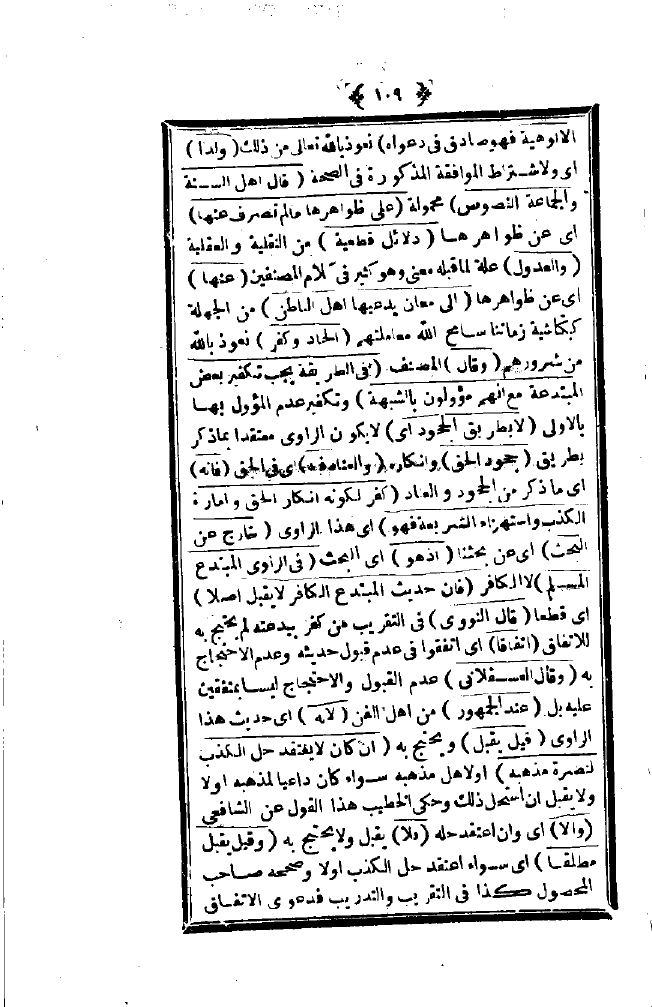 ﴿ ١٠٩ ﴾
الالوهية فهو صادق فى دعواه) نعوذ بالله تعالى من ذلك (ولذا)
اى ولاشتراط الموافقة المذكورة فى الصحة (قال اهل السنة
والجماعة النصوص) محمولة (على ظواهرها مالم تصرف عنها)
اى عن ظواهرها (دلائل قطعية) من النقلية والعقلية
(والعدول) علة لما قبله معنى وهو كثير فى كلام المصنفين (عنها)
اى عن ظواهرها (الى معان يدعيها اهل الباطن) من الجهلة
كبكتاشية زماننا سامح الله معاملتهم (الحاد وكفر) نعوذ بالله
من شرورهم (وقال) المصنف (فى الطريقة يجب تكفير بعض
المبتدعة مع انهم مؤولون بالشبهة) وتكفير عدم المؤول بها
بالاولى (لا بطريق الجحود اى) لا يكون الراوى معتقدا بماذكر
بطريق (جحود الحق) وانكاره (والعناد فيه) اى فى الحق (فانه)
اى ما ذكر من الجحود والعناد (كفر لكونه انكار الحق وامارة
الكذب واستهزاء الشريعة فهو) اى هذا الراوى (خارج عن
البحث) اى عن بحثنا (اذهو) اى البحث (فى الراوى المبتدع
المسلم) لا الكافر (فان حديث المبتدع الكافر لا يقبل اصلا)
اى قطعا (قال النووى) فى التقريب من كفر ببدعته لم يحتج به
للاتفاق (اتفاقا) اى اتفقوا فى عدم قبول حديثه وعدم الاحتجاج
به (وقال العسقلانى) عدم القبول والاحتجاج ليسا بمتفقين
عليه بل (عند الجمهور) من اهل الفن (لانه) اى حديث هذا
الراوى (قيل يقبل) ويحتج به (ان كان لا يعتقد حل الكذب
لنصرة مذهبه) اولاهل مذهبه سواء كان داعيا لمذهبه اولا
ولا يقبل ان استحل ذلك وحكى الخطيب هذا القول عن الشافعى
(والا) اى وان اعتقد حله (فلا) يقبل ولا يحتج به (وقيل يقبل
مطلقا) اى سواء اعتقد حل الكذب اولا وصححه صاحب
المحصول كذا فى التقريب والتدريب فدعوى الاتفاق